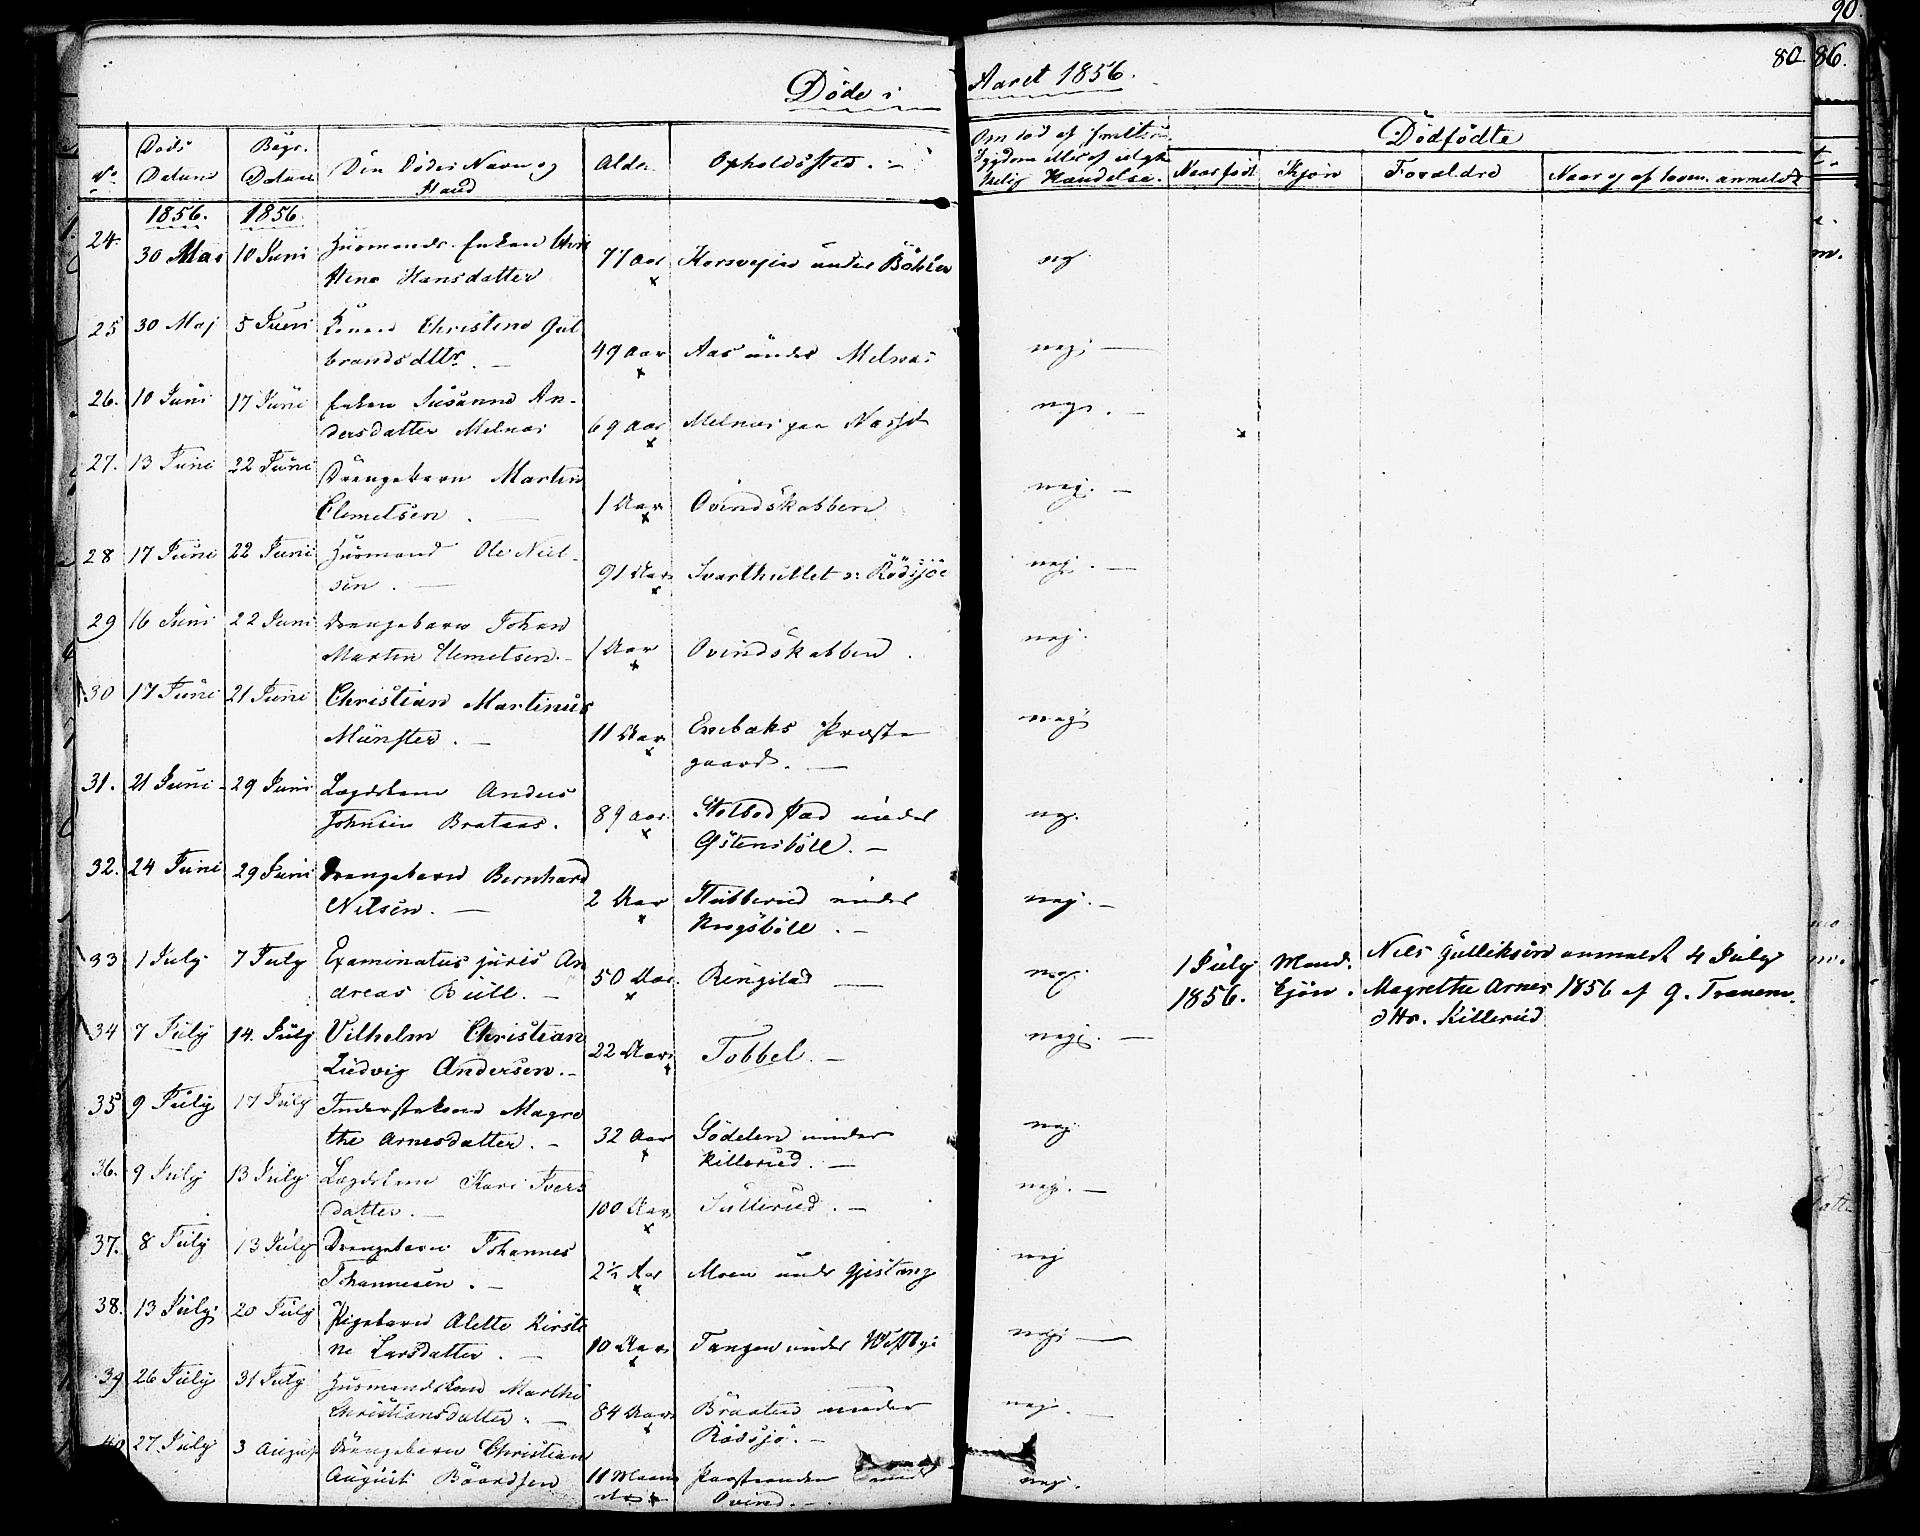 90
80 86.
Døde i Aaret 1856.
No Døds Datum Begr. Datum Den Dødes Navn og Stand Alder Opholdssted. Om död af smitsom Sygdom eller af ulyk kelig Hændelse. Dødfødte
Naar født Kjøn Forældre Naar og af hvem anmeldt
1856. 1856.
24. 30 Mai 10 Juni Huusmands Enken Chri
stine Hansdatter 77 Aar Korsvejen under Böhler nej
25 30 Maj 5 Juni Konen Christine Gul
brandsdttr. 49 Aar Aas under Melnæs nej
26. 10 Juni 17 Juni Enken Susanne An-
dersdatter Melnæs 69 Aar Melnæs paa Næsset nej
27. 13 Juni 22 Juni Drengebarn Martin
Clemetsen. 1 Aar Ovindskabben nej.
28 17 Juni 22 Juni Huusmand Ole Niel-
sen. 91 Aar Svarthullet u: Rödsjöe nej.
29 16 Juni 22 Juni Drengebarn Johan
Martin Clemetsen. 1 Aar Ovindskabben. nej.
30 17 Juni 21 Juni Christian Martinus
Münster. 11 Aar Enebaks Præste
gaard. nej
31. 21 Juni 29 Juni Lægdslem Anders
Johnsen Brataas. 89 Aar under
nej.
32. 24 Juni 29 Juni Drengebarn Bernhard
Nilsen. 2 Aar Stubberud under
Krogsböll. nej.
33 1 July 7 July Examinatus juris An
dreas Bull. 50 Aar. Ringstad nej. 1 July 1856. Mand. kjön. Nils Gulliksen Magrethe Arnes dttr. Killerud anmeldt 4 July 1856 af G. Tranem.
34 7 July 14. July Vilhelm Christian
Ludvig Andersen. 22 Aar Tobbel. nej.
35 9 July 17 July Inderstekone Magre
the Arnesdatter. 32 Aar Sødelen under
Killerud. nej
36. 9 July 13 July Lægdslem Kari Ivers
datter. 100 Aar Sullerud. nej.
37. 8 July 13 July Drengebarn Johannes
Johannesen. 2½ Aar Moen under Gjestang nej
38. 13 July 20 July Pigebarn Alette Kirsti
ne Larsdatter. 10 Aar Tangen under Westbye nej
39 26 July 31 July Huusmandskone Marthe
Christiansdatter. 84 Aar Bräaten under
Rödsjö. nej.
40 27 July 3 August Drengebarn Christian
August Baardsen 11 Maan
under
Ovind. nej.